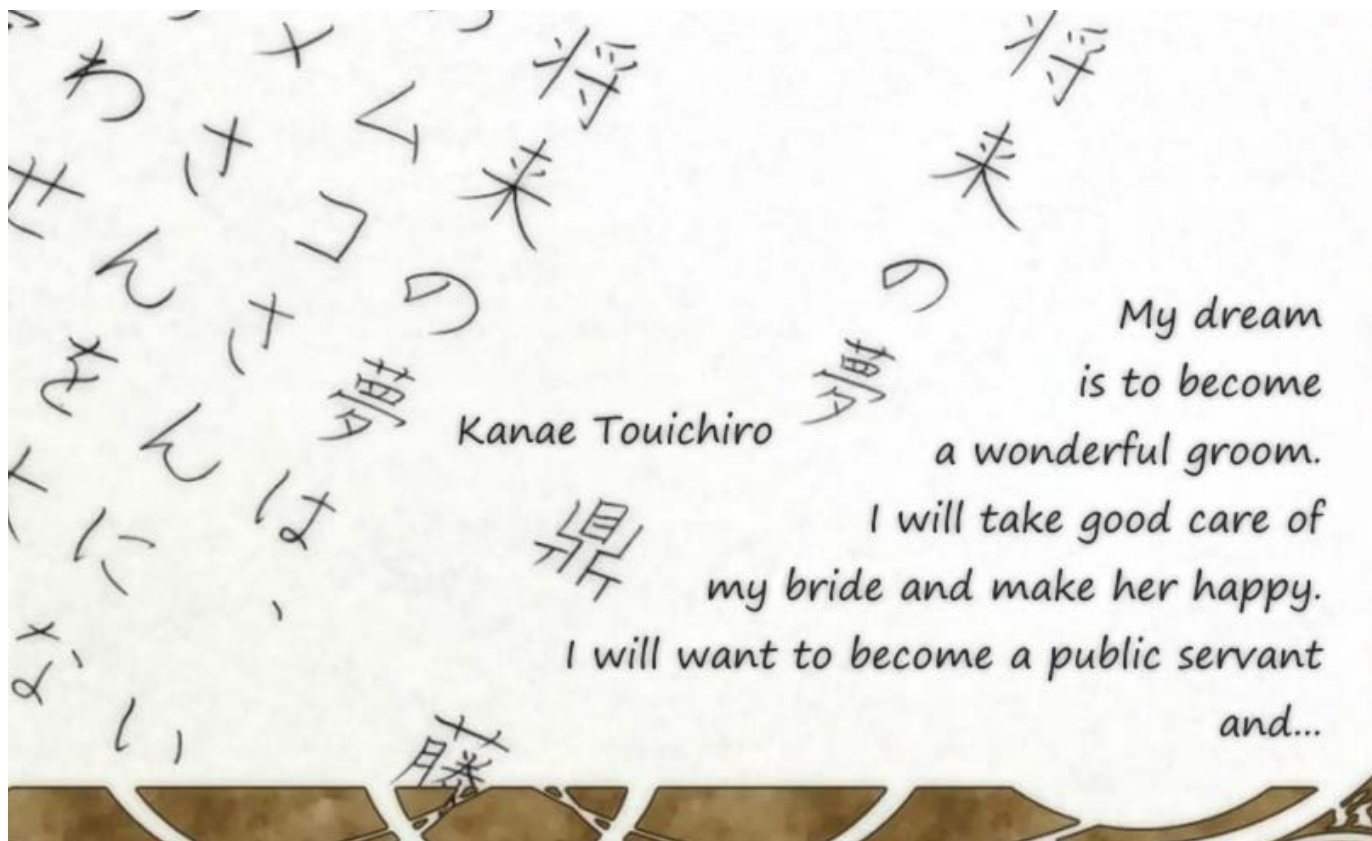 将来の夢
鼎藤
将来の夢は、い
ムコさんにな
メさんを
わせ
Kanae Touichiro
My dream
is to become
a wonderful groom.
I will take good care of
my bride and make her happy.
I will want to become a public servant
and...